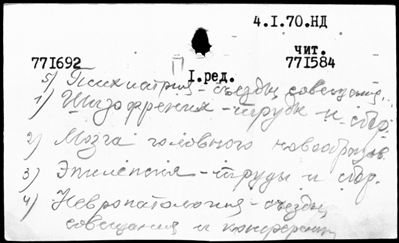 4.I.70.НД
чит.
771692 771584
I.ред.
5) Психиатрия - съезды, совещания..
1) Шизофрения - труды и сбор.
2) Мозга головного новообразов.
3) Эпилепсия - труды и сбор.
4) Невропатология - съезды,
совещания и конференц.